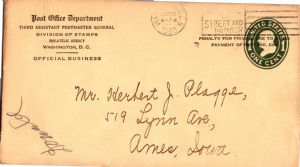 Post Office Department
THIRD ASSISTANT POSTMASTER GENERAL
DIVISION OF STAMPS
PHILATELIC AGENCY
WASHINGTON, D. C.
OFFICIAL BUSINESS
STREET AND
NUMBER
PENALTY FOR PRIVATE USE TO
PAYMENT OF
UNITED STATES
1
ONE CENT
Mr. Herbert J. Plagge,
519 Lynn Ave,
Ames, Iowa.